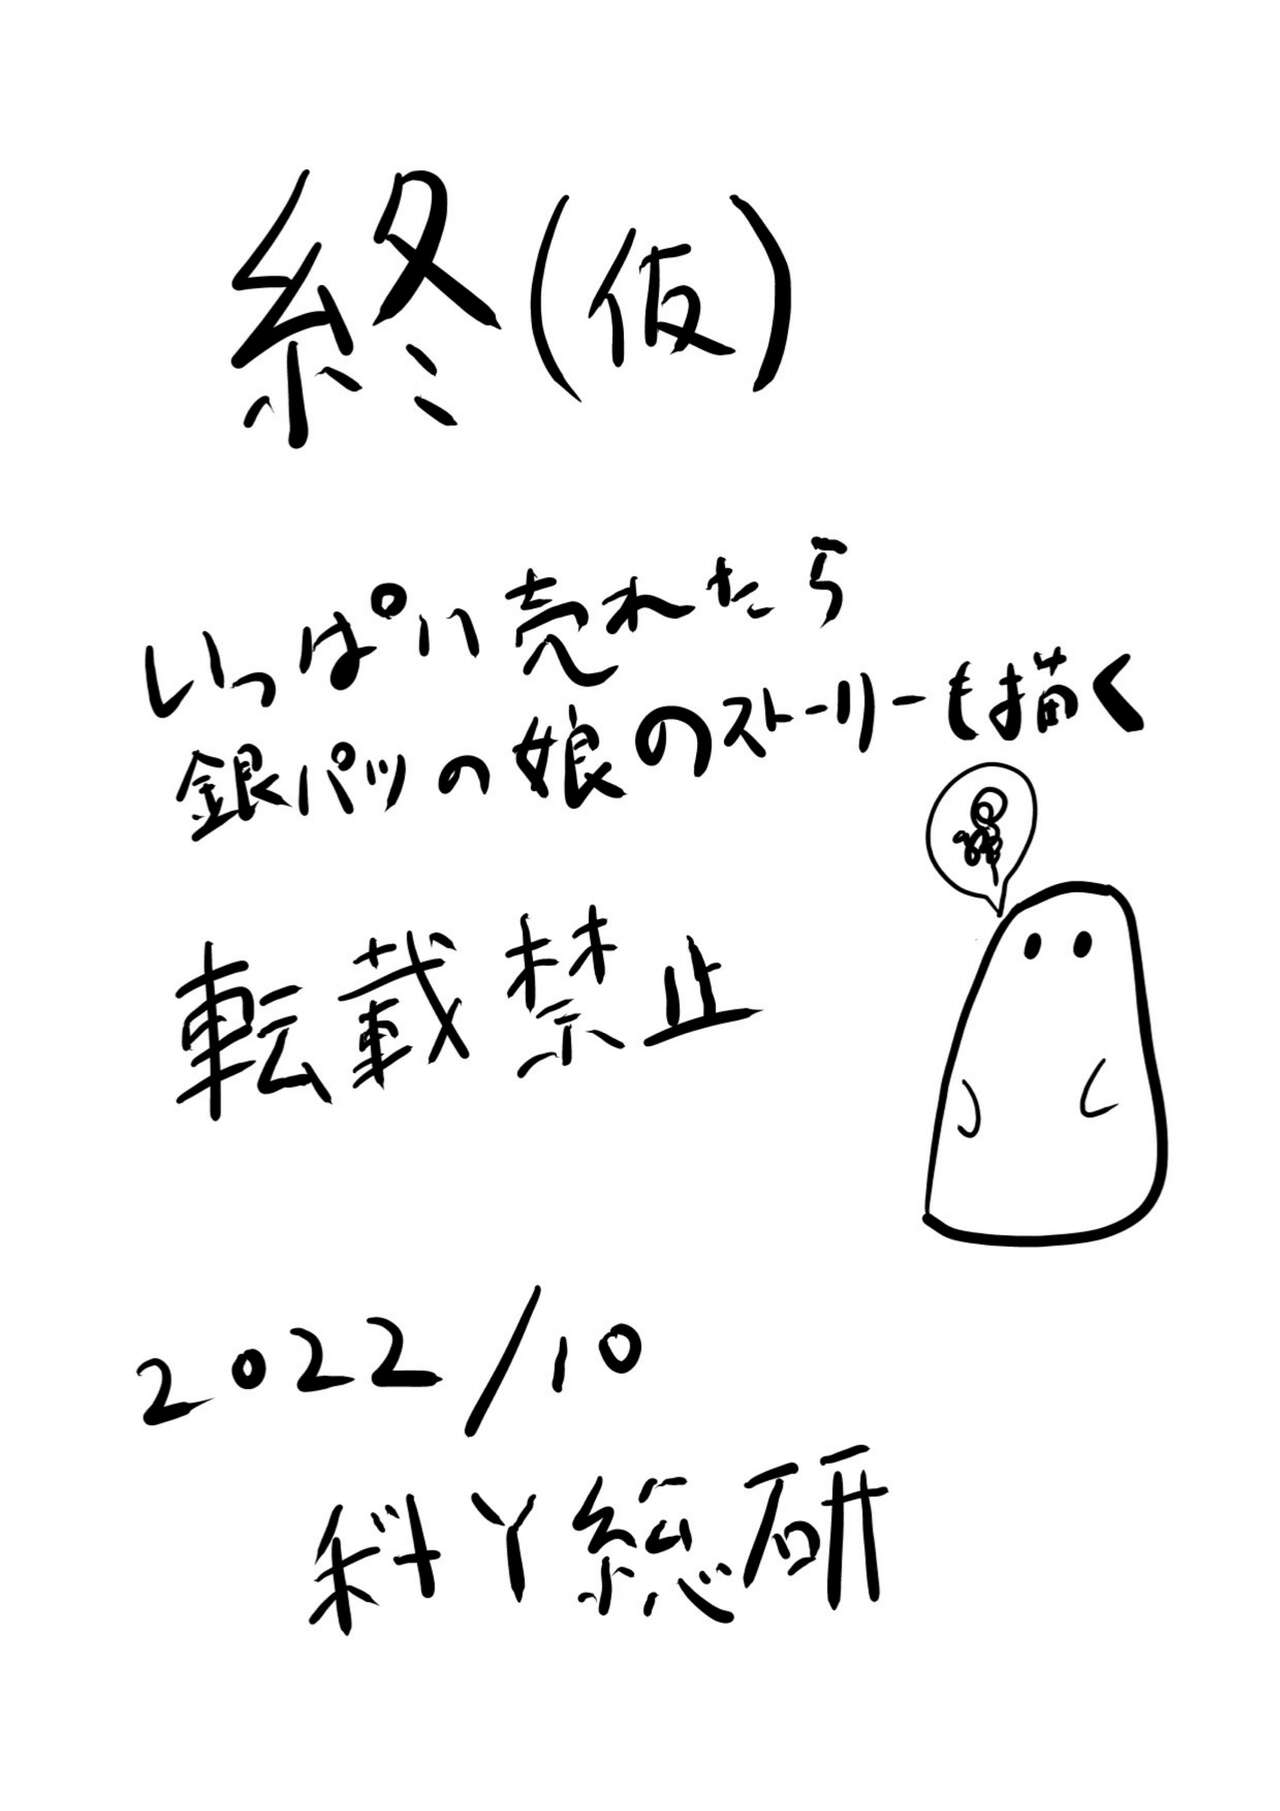 終(仮)
いっぱい売れたら
銀パツの娘のストーリーも描く
転載禁止
2022/10
料Y総研